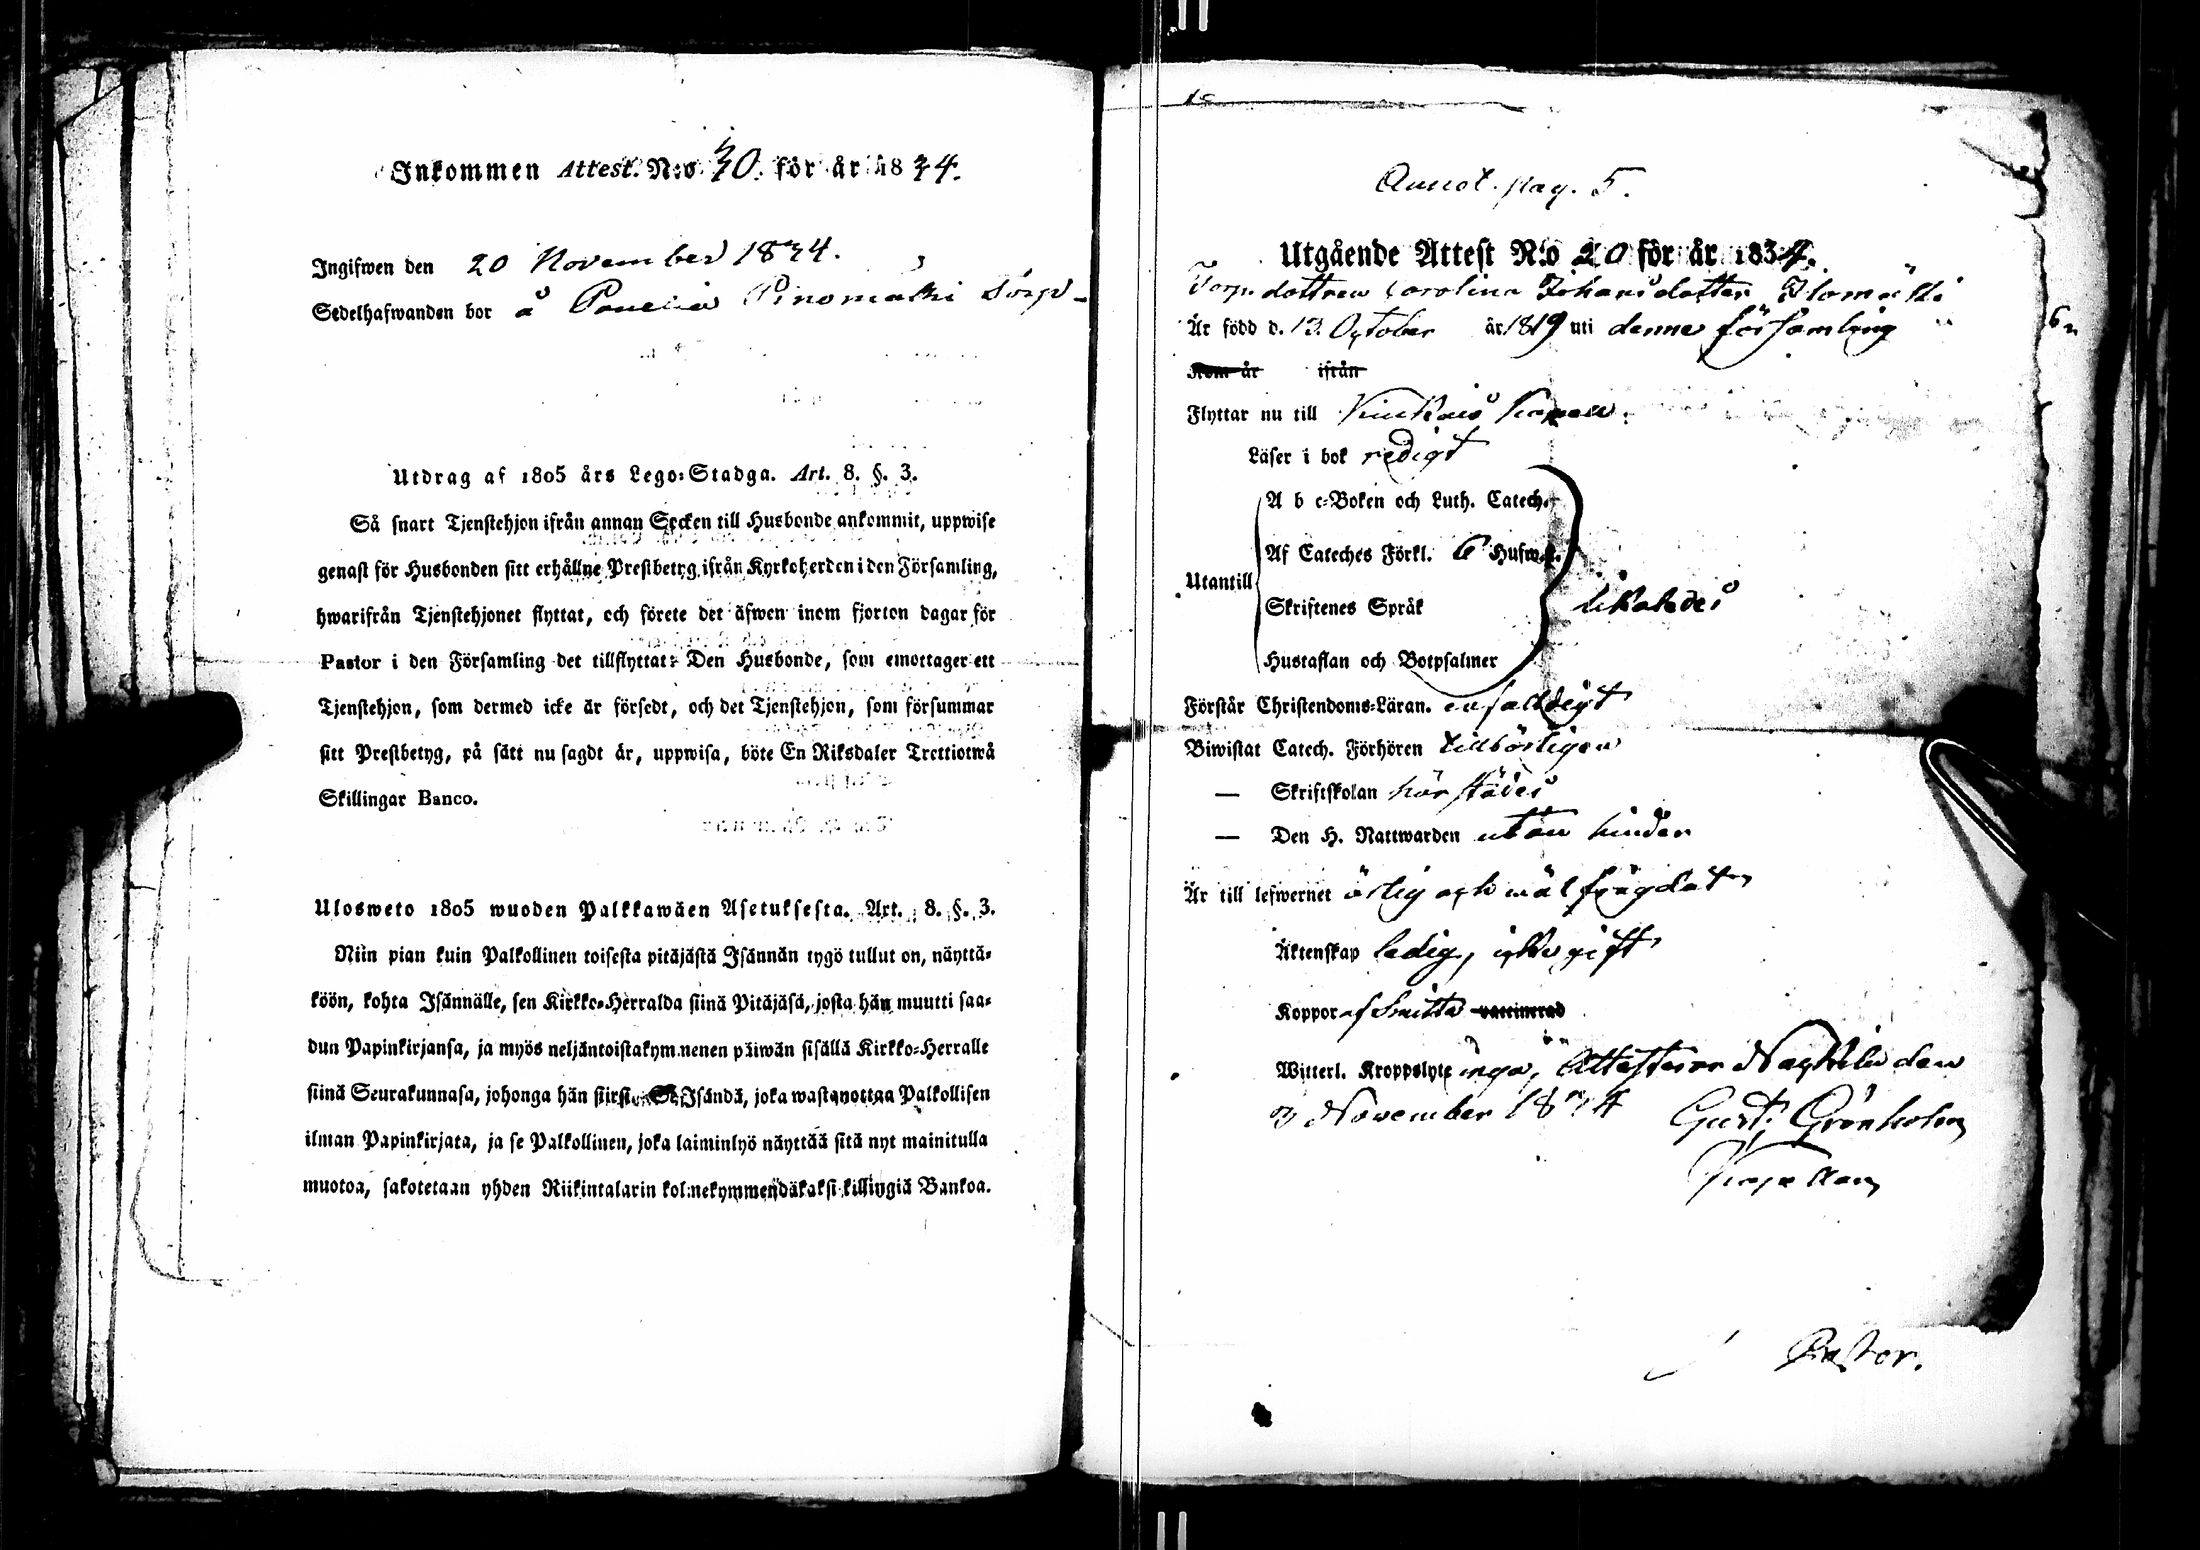 Inkommen Attest. N:o 30. för år 1834.
Ingifwen den 20 November 1834.
Sedelhafwanden bor å Panelia Pinomäki torp
Utdrag af 1805 års Lego-Stadga. Art. 8. §. 3.
Så snart Tjenstehjon ifrån annan Socken till Husbonde ankommit, uppwise
genast för Husbonden sitt erhållne Prestbetyg ifrån Kyrkoherden i den Församling,
hwarifrån Tjenstehjonet flyttat, och förete det äfwen inom fjorton dagar för
Pastor i den Församling det tillflyttat: Den Husbonde, som emottager ett
Tjenstehjon, som dermed icke är försedt, och det Tjenstehjon, som försummar
sitt Prestbetyg, på sätt nu sagdt är, uppwisa, böte En Riksdaler Trettiotwå
Skillingar Banco.
Ulosweto 1805 wuoden Palkkawäen Asetuksesta. Art. 8. §. 3.
Niin pian kuin Palkollinen toisesta pitäjästä Isännän tygö tullut on, näyttä-
köön, kohta Isännälle, sen Kirkko-Herralda siinä Pitäjäsä, josta hän muutti saa-
dun Papinkirjansa, ja myös neljäntoistakymmenen päiwän sisällä Kirkko-Herralle
siinä Seurakunnasa, johonga hän siirsi. Se Isändä, joka wastanottaa Palkollisen
ilman Papinkirjata, ja se Palkollinen, joka laiminlyö näyttää sitä nyt mainitulla
muotoa, sakotetaan yhden Riikintalarin kolmekymmendäkaksi killingiä Bankoa.
Annot. pag. 5.
Utgående Attest N:o 20 för år 1834.
Torp. dottren Carolina Johansdotter Ilomäki
Är född d. 13 October år 1819 uti denne församling
Kom år ifrån
Flyttar nu till Kiukais
Läser i bok redigt
A b c-Boken och Luth. Catech.
Af Cateches Förkl. 6 Hufw.
Utantill
Skriftenes Språk likaledes
Hustaflan och Botpsalmer
Förstår Christendoms-Läran. enfaldigt
Biwistat Catech. Förhören tillbörligen
— Skriftskolan härstädes
— Den H. Nattwarden utan hinder
Är till lefwernet ärlig och wäl frägdat
Äktenskap ledig, icke gift
Koppor af Smitta vaccinerad
Witterl. Kroppslyte inga, Attesterar Nackila den
November 1834 Gust: Grönholm
Pastor.